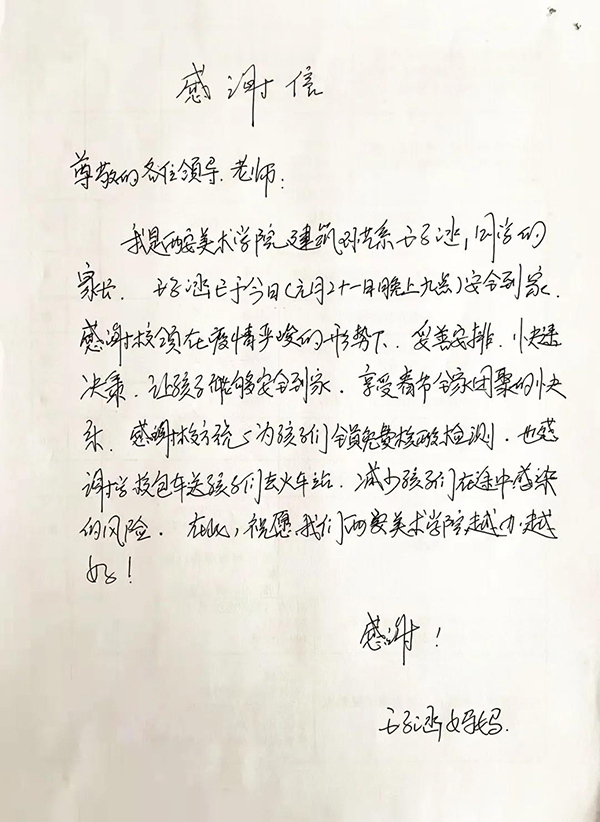 感谢信
尊敬的各位领导、老师：
我是西安美术学院建筑环艺系 子涵，同学的
家长. 子涵已于今日(元月二十一日晚上九点)安全到家.
感谢校领在疫情严峻的形势下. 妥善安排. 快速
决策. 让孩子能够安全到家. 享受春节全家团聚的快
乐. 感谢校方统一为孩子们全员免费核酸检测. 也感
谢学校包车送孩子们去火车站. 减少孩子们在途中感染
的风险. 在此, 祝愿我们西安美术学院越办越
好!
感谢!
子涵妈妈.